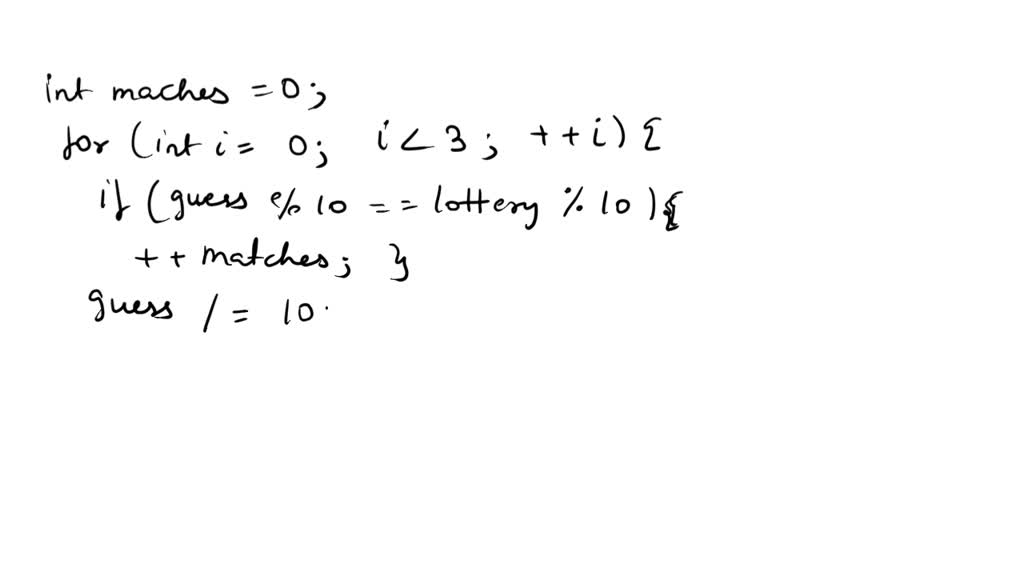 int maches = 0;
for (int i = 0; i < 3; ++i) {
if (guess % 10 == lottery % 10) {
++ matches; }
guess /= 10.